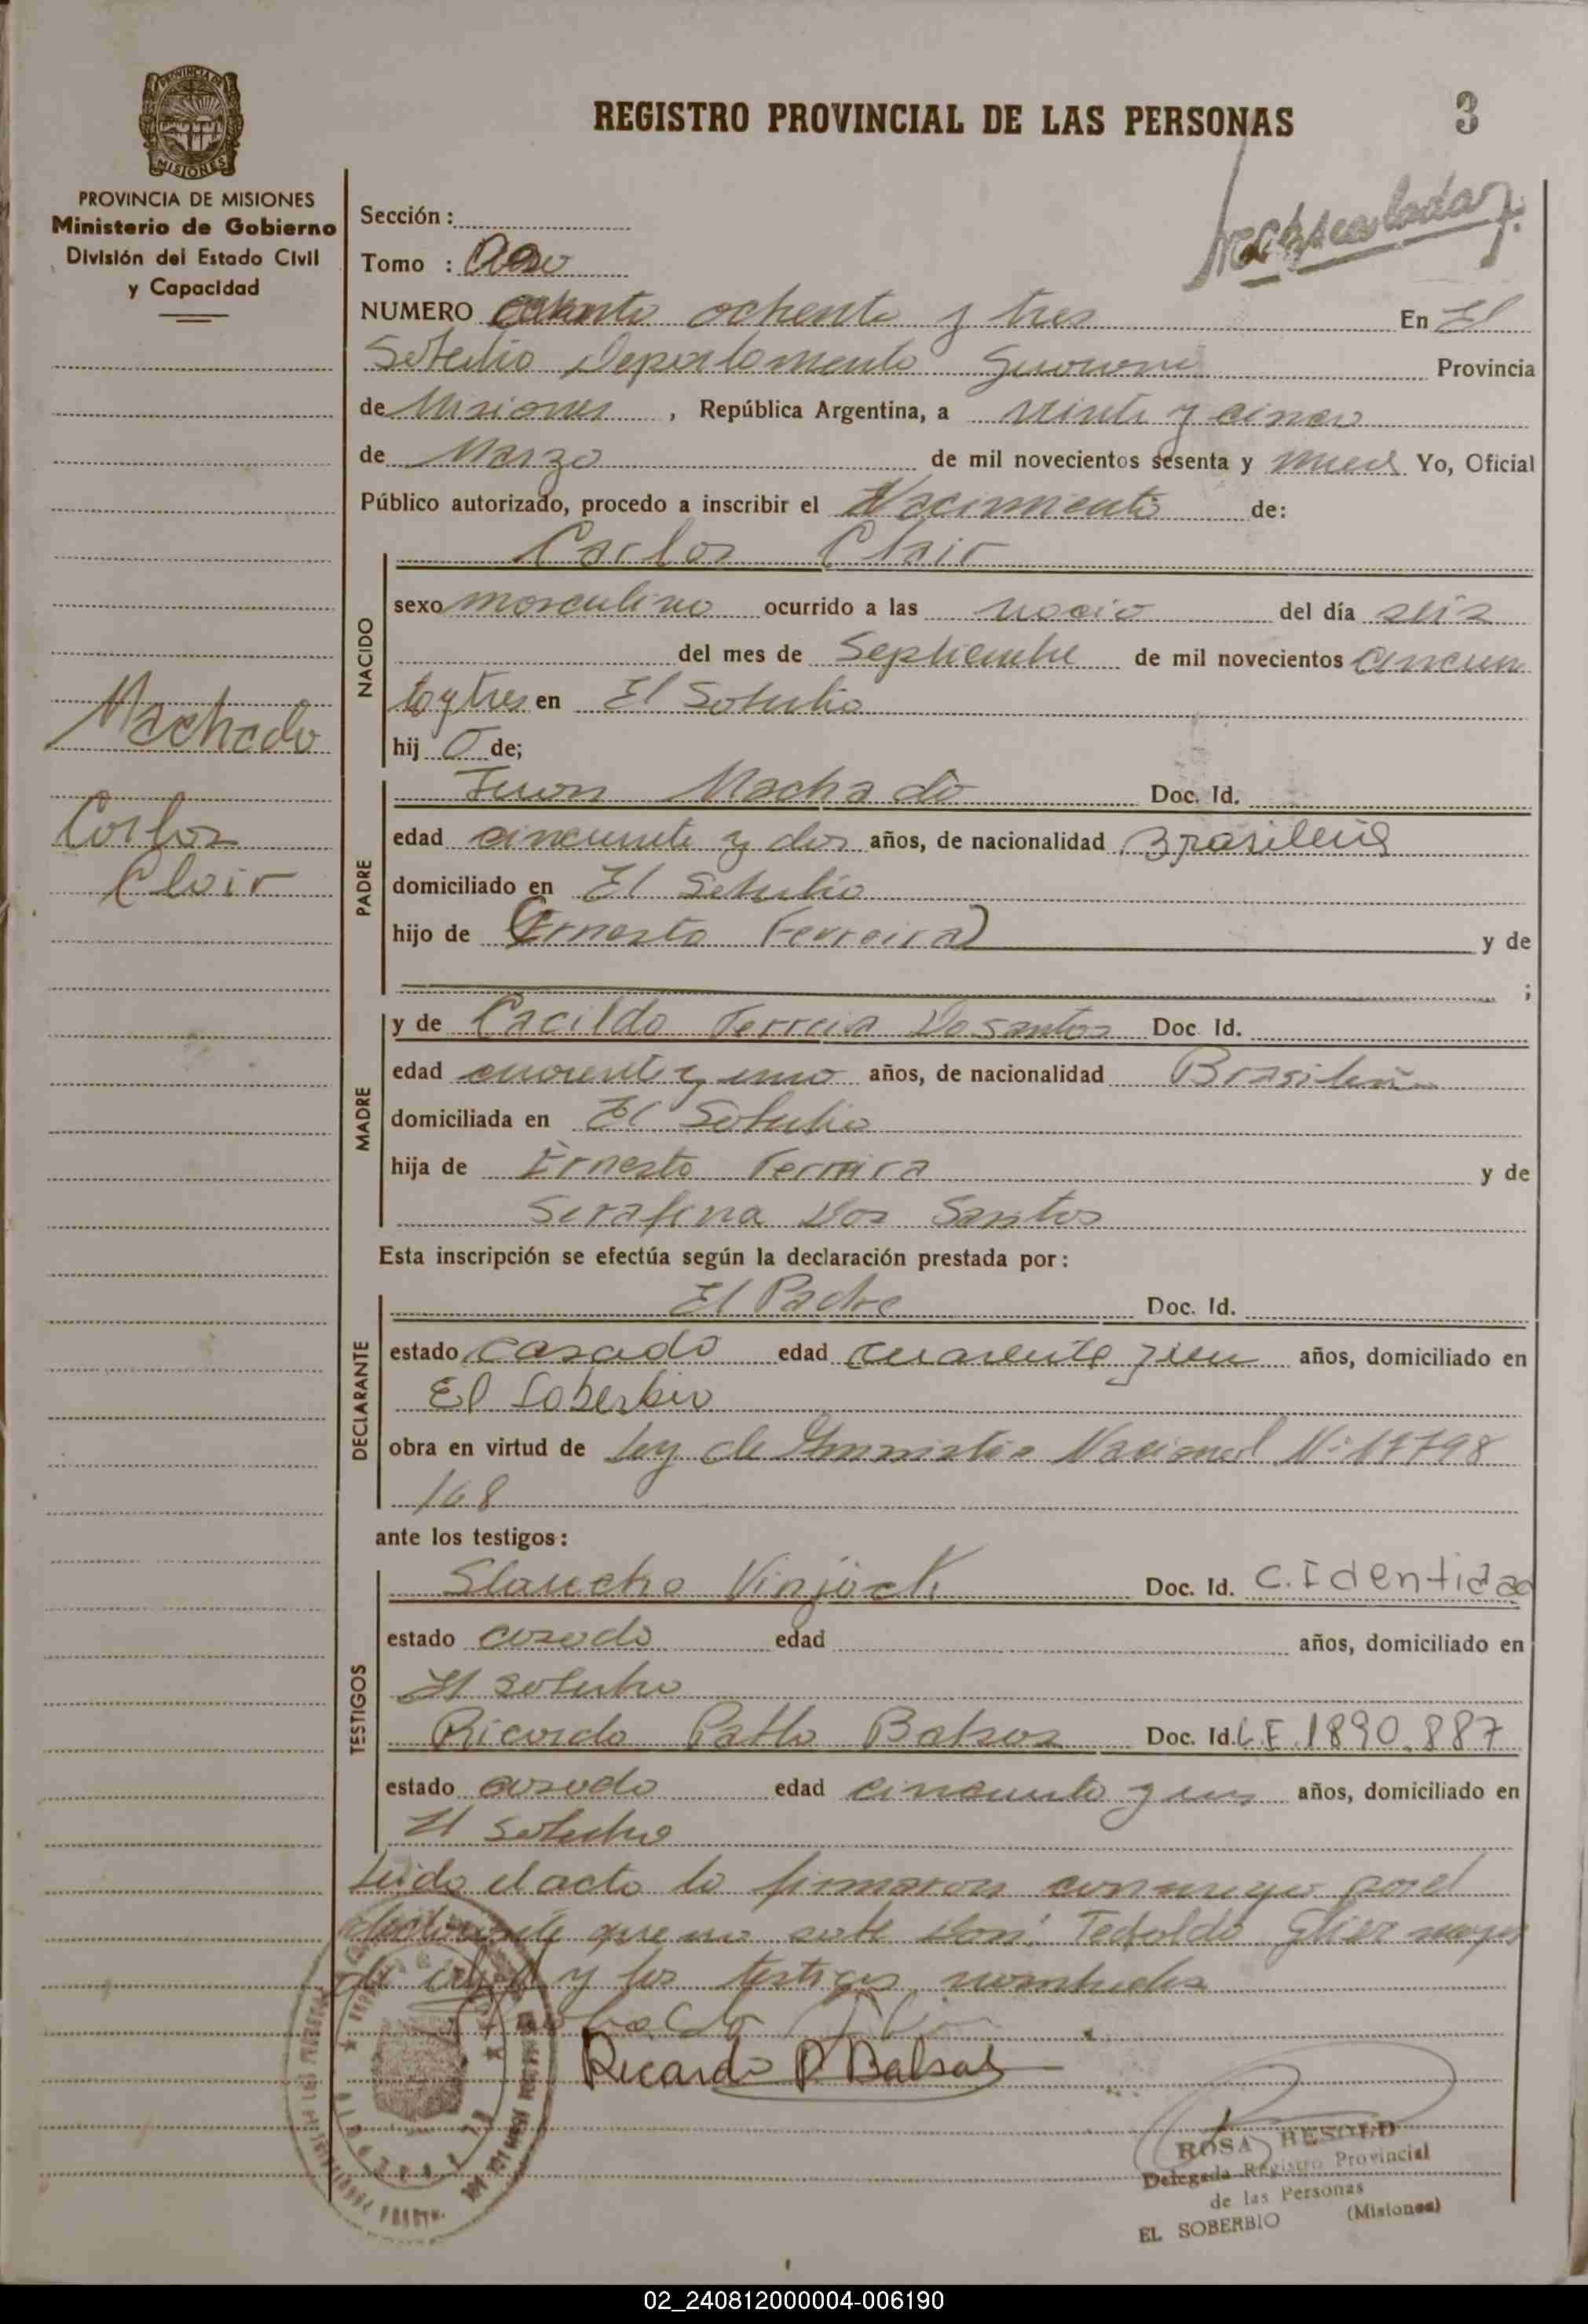 PROVINCIA DE
MISIONES
PROVINCIA DE MISIONES
Ministerio de Gobierno
División del Estado Civil
y Capacidad
REGISTRO PROVINCIAL DE LAS PERSONAS
3
Sección :
Tomo :
NUMERO ochenta y tres En El
Soberbio Departamento Guarani Provincia
de Misiones , República Argentina, a veinte y cinco
de Marzo de mil novecientos sesenta y nueve Yo, Oficial
Público autorizado, procedo a inscribir el Nacimiento de:
Machado
Carlos
Clair
NACIDO
Carlos Clair
sexo masculino ocurrido a las del día seis
del mes de Septiembre de mil novecientos cincuen
ta y tres en El Soberbio
hij o de;
PADRE
Juan Machado Doc. Id.
edad cincuenta y dos años, de nacionalidad Brasileña
domiciliado en El Soberbio
hijo de (Ernesto Ferreira) y de
;
MADRE
y de Cacilda Ferreira Dosantos Doc Id.
edad cuarenta y uno años, de nacionalidad Brasileña
domiciliada en El Soberbio
hija de Ernesto Ferreira y de
Serafina Dos Santos
Esta inscripción se efectúa según la declaración prestada por :
DECLARANTE
El Padre Doc. Id.
estado casado edad cuarenta y un años, domiciliado en
El Soberbio
obra en virtud de Ley de Amnistia Nacional Nº 17798
168
ante los testigos :
TESTIGOS
Doc. Id. C. Identidad
estado casado edad años, domiciliado en
El Soberbio
Ricardo Pablo Balsas Doc. Id. L.E. 1890.887
estado casado edad cincuenta y un años, domiciliado en
El Soberbio
Leido el acta la firmaron conmigo por el
declarante que no sabe Don: Tedaldo mayor
de edad y los testigos nombrados
Ricardo P. Balsas
ROSA HESOLD
Delegada Registro Provincial
de las Personas
EL SOBERBIO (Misiones)
02_240812000004-006190